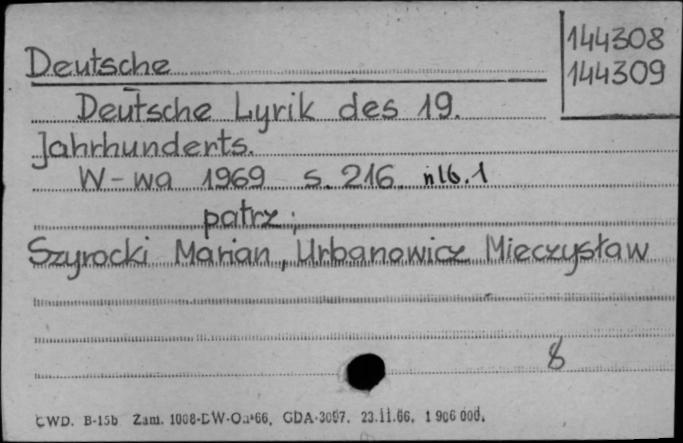 144308
144309
Deutsche
Deutsche Lyrik des 19.
Jahrhunderts.
W-wa 1969 s. 216. nlb. 1
patrz:
Szyrocki Marian, Urbanowicz Mieczysław
8
CWD. B-15b Zam. 1008-DW-Oa-66. GDA-3097. 23.11.66. 1 906 000.